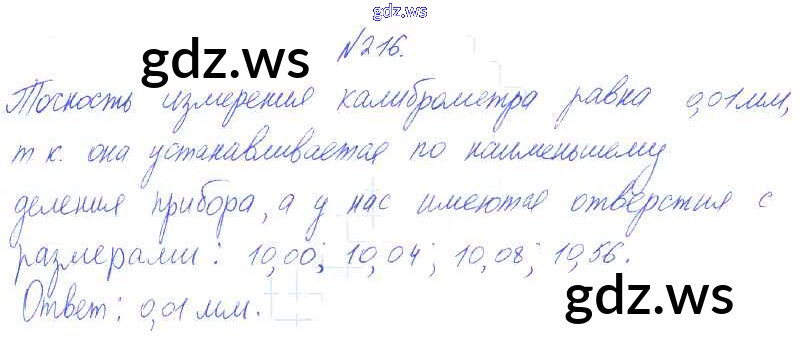 gdz.ws
№216.
gdz.ws
gdz.ws
Точность измерения калиброметра равна 0,01мм,
т к. она устанавливается по наименьшему
деления прибора, а у нас имеются отверстия с
размерами: 10,00; 10,04; 10,08; 10,56.
Ответ: 0,01 мм.
gdz.ws
gdz.ws